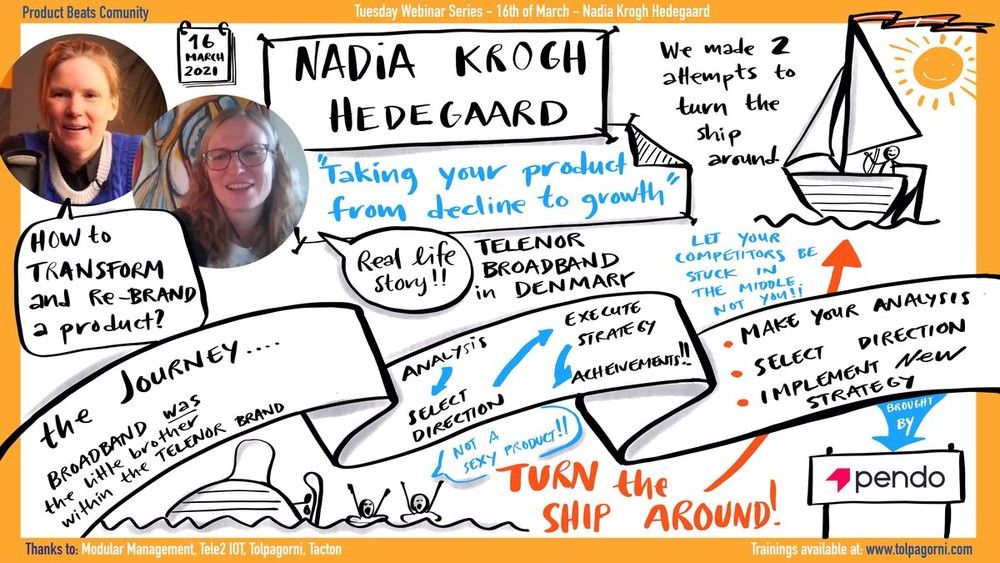 Product Beats Comunity
Tuesday Webinar Series - 16th of March - Nadia Krogh Hedegaard
16
MARCH
2021
NADIA KROGH
HEDEGAARD
"Taking your product
from decline to growth"
We made 2
attempts to
turn the
ship
around
HOW to
TRANSFORM
and RE-BRAND
a product?
Real life
Story!!
TELENOR
BROADBAND
in DENMARK
LET YOUR
COMPETITORS BE
STUCK IN
THE MIDDLE,
NOT YOU!!
the JOURNEY....
BROADBAND was
the little brother
within the TELENOR BRAND
ANALYSIS
SELECT
DIRECTION
EXECUTE
STRATEGY
ACHEIVEMENTS!!
NOT A
SEXY PRODUCT!!
• MAKE YOUR ANALYSIS
• SELECT DIRECTION
• IMPLEMENT NEW
STRATEGY
TURN the
SHIP AROUND!
BROUGHT
BY
pendo
Thanks to: Modular Management, Tele2 IOT, Tolpagorni, Tacton
Trainings available at: www.tolpagorni.com